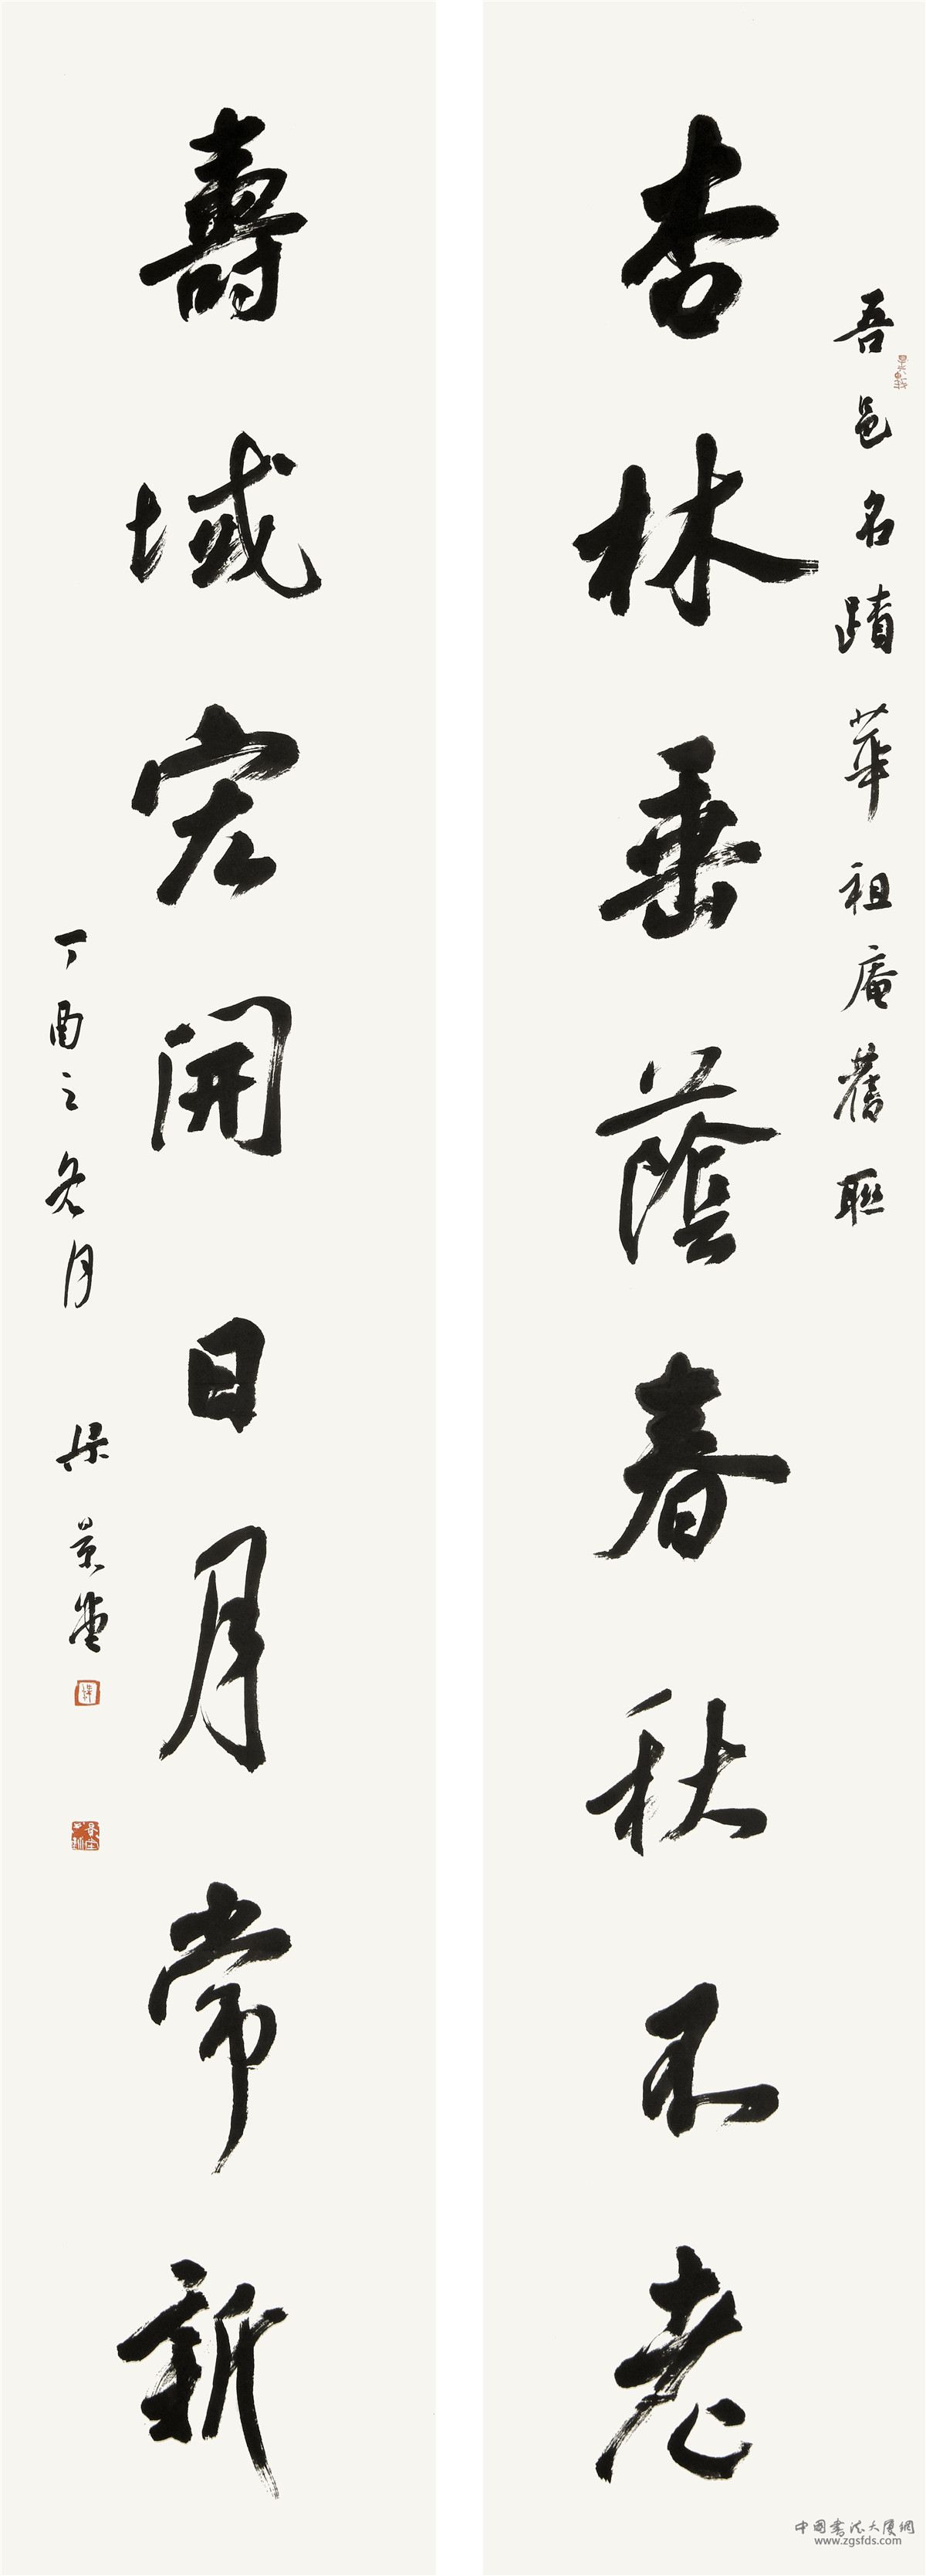 吾邑名蹟華祖庵舊聯
杏林垂蔭春秋不老
壽域宏開日月常新
丁酉之冬月 梁景堂
中国书法大厦網
www.zgsfds.com